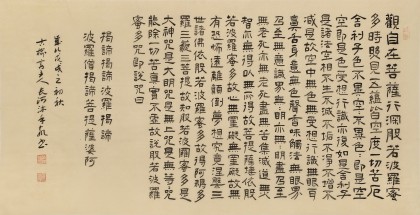 觀自在菩薩行深般若波羅蜜
多時照見五蘊皆空度一切苦厄
舍利子色不異空空不異色色即是
空空即是色受想行識亦復如是舍利子
是諸法空相不生不滅不垢不淨不增不
減是故空中無色無受想行識無眼耳
鼻舌身意無色聲香味觸法無眼界
乃至無意識界無無明亦無無明盡乃至
無老死亦無老死盡無苦集滅道無
智亦無得以無所得故菩提薩埵依般
若波羅蜜多故心無罣礙無罣礙故無
有恐怖遠離顛倒夢想究竟涅槃三
世諸佛依般若波羅蜜多故得阿耨多
羅三藐三菩提故知般若波羅蜜多是
大神咒是大明咒是無上咒是無等等咒
能除一切苦真實不虛故說般若波羅
蜜多咒即說咒曰
揭諦揭諦波羅揭諦
波羅僧揭諦菩提薩婆訶
之初秋